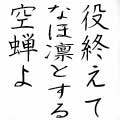 役終えて
なほ凛とする
空蝉よ